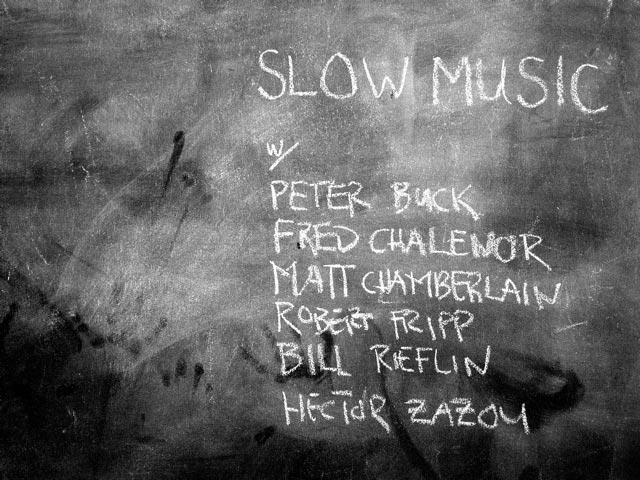 SLOW MUSIC
w/
PETER BUCK
FRED CHALENOR
MATT CHAMBERLAIN
ROBERT FRIPP
BILL RIEFLIN
HECTOR ZAZOU